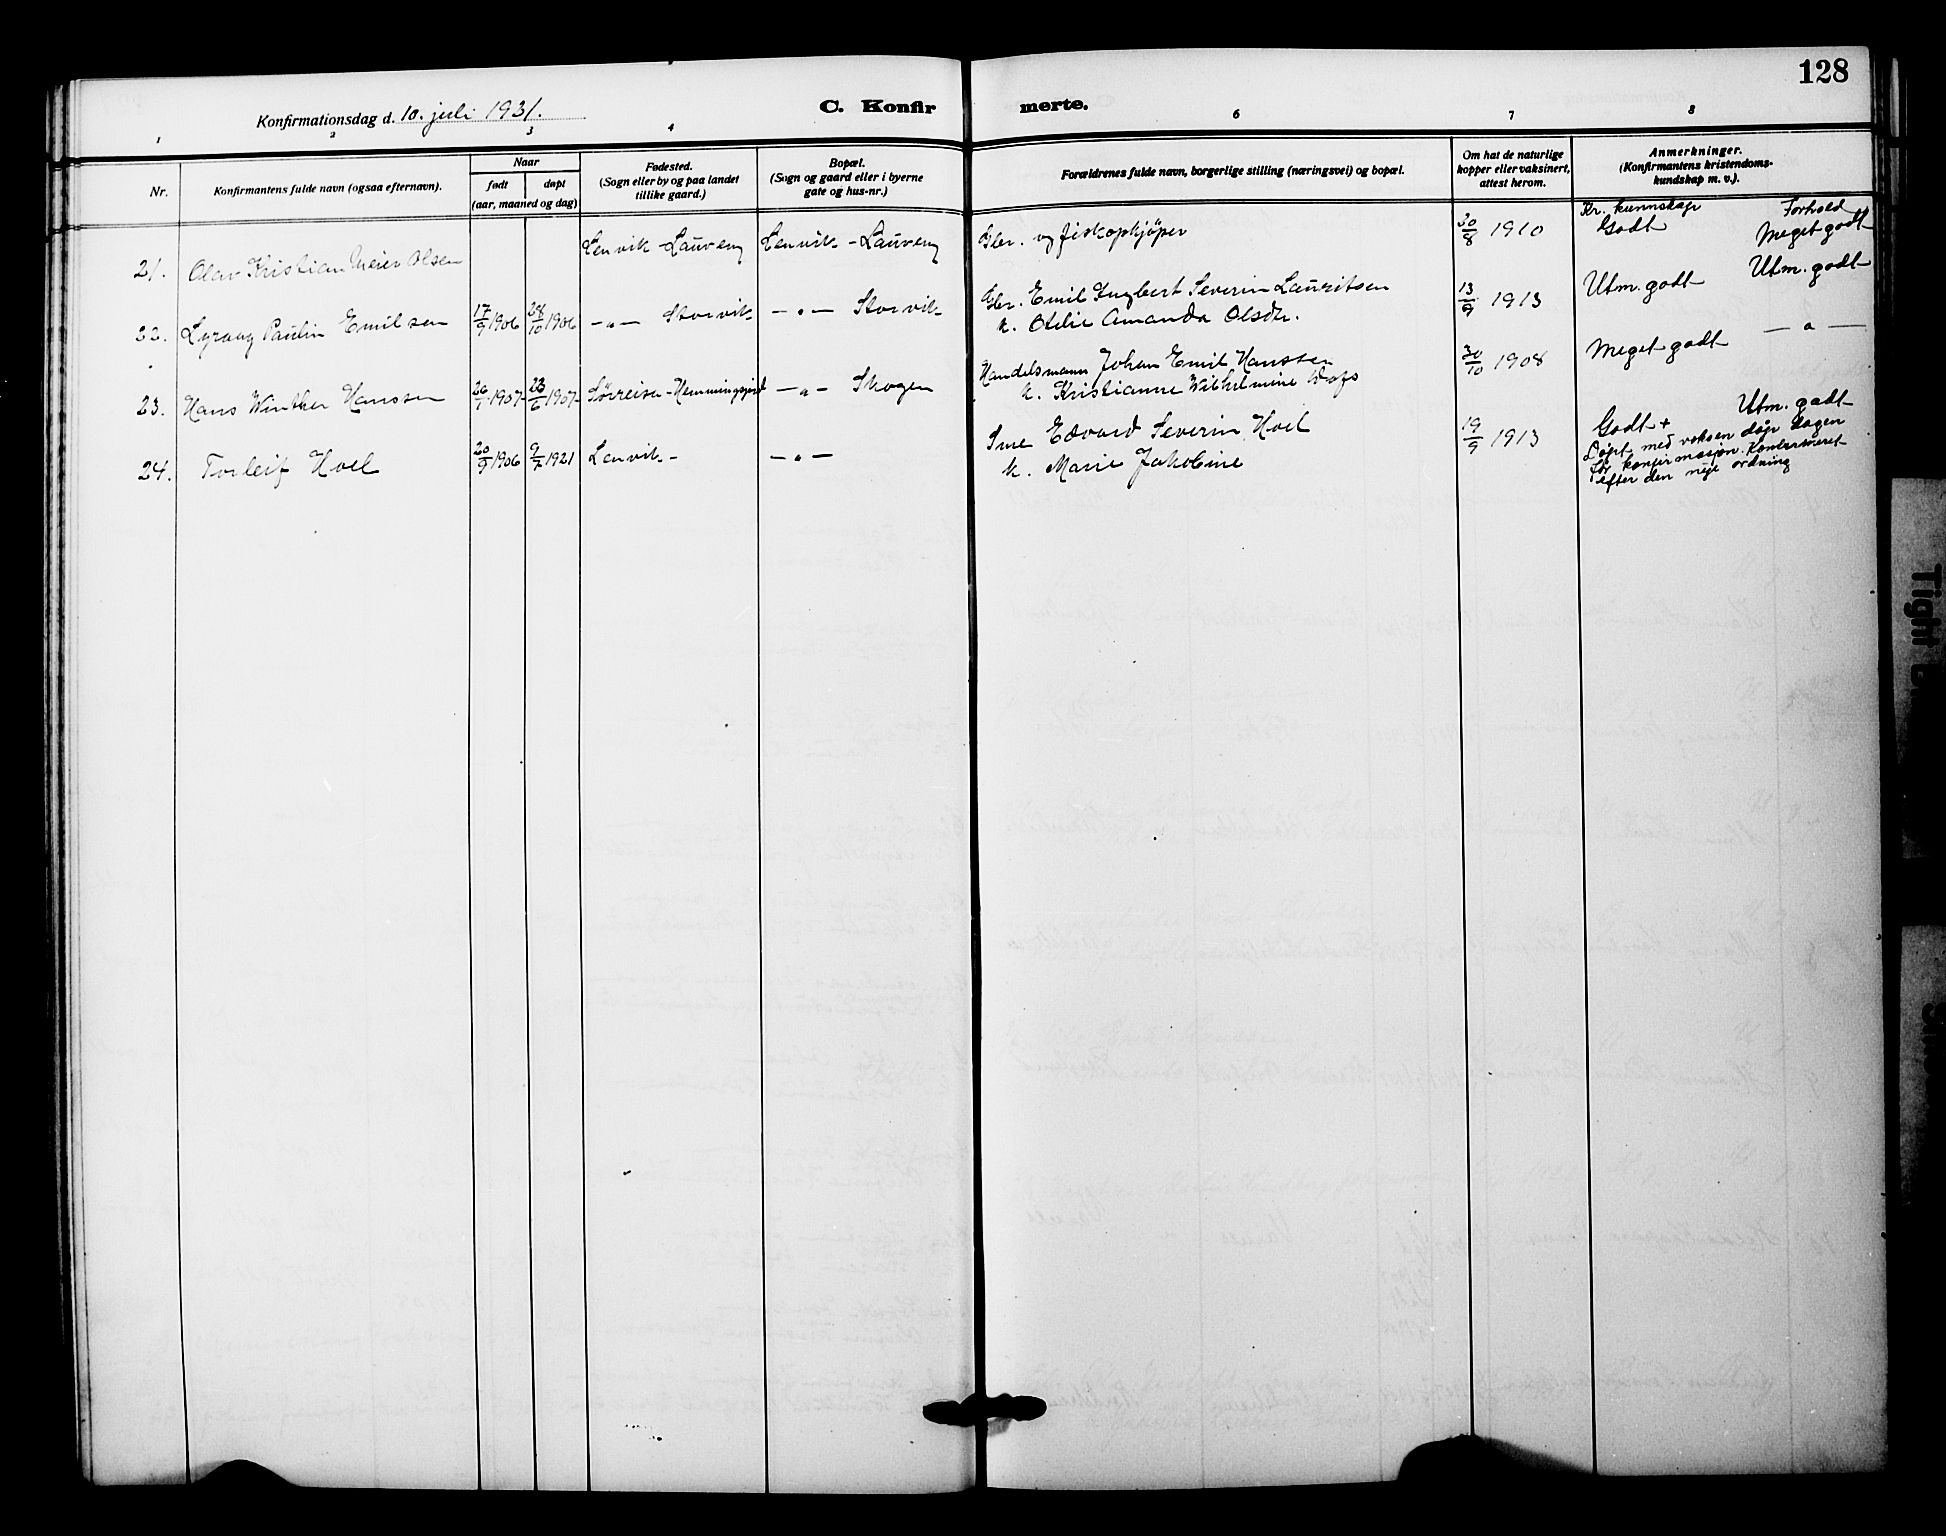 128
Konfirmationsdag d. 10. juli 1931.
C. Konfir
merte.
1 2 3 4 6 7 8
Nr.
Konfirmantens fulde navn (ogsaa efternavn).
Naar
født
døpt
(aar, maaned og dag)
Fødested.
(Sogn eller by og paa landet
tillike gaard.)
Bopæl.
(Sogn og gaard eller i byerne
gate og hus-nr.)
Forældrenes fulde navn, borgerlige stilling (næringsvei) og bopæl.
Om hat de naturlige
kopper eller vaksinert,
attest herom.
Anmerkninger.
(Konfirmantens kristendoms-
kundskap m. v.).
Kr. kunnskap Forhold
21. Olav Kristian Meier Olsen Lenvik - Laukeng Lenvik - Laukeng Gbr. og fiskopkjøper 30/8 1910 Godt Meget godt
22. Paulin Emilsen 17/9 1906 28/10 1906 -"- Storvik -"- Storvik Gbr. Emil Ingbert Severin Lauritsen 13/9 1913 Utm. godt Utm. godt
k. Otelie Amanda Olsdtr.
23. Hans Winther Hanssen 26/1 1907 23/6 1907 Sørreisa - Hemmingsjord -"- Skogen Handelsmann Johan Emil Hanssen 30/10 1908 Meget godt -"-
k. Kristianne Wilhelmine
24. Torleif Hoel 20/9 1906 9/7 1921 Lenvik - -"- Sme Edvard Severin Hoel 19/9 1913 Godt + Utm. godt
k. Marie Jakobine
Døpt med voksen dåp dagen
før konfirmasjon. Konfirmeret
efter den nye ordning
Tight